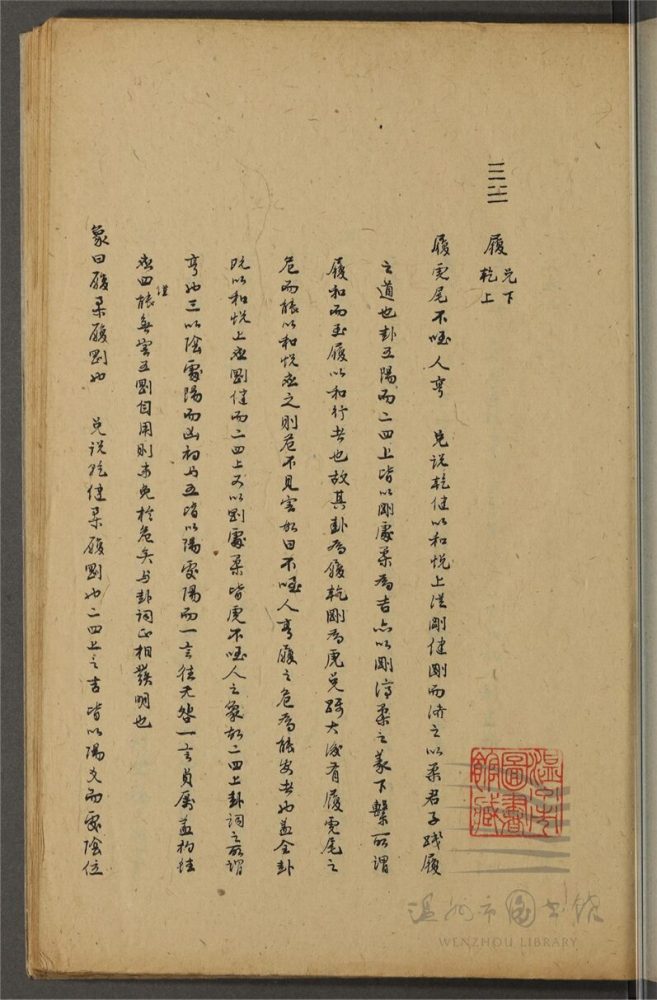 ䷉ 履 兌下乾上
履虎尾不咥人亨 兌說乾健以和悅上從剛健剛而済之以柔君子踐履
之道也卦五陽而二四上皆以剛處柔為吉亦以剛済柔之義下繫所謂
履和而至履以和行者也故其卦為履乾剛為虎兌 大 有履虎尾之
危而能以和悅應之則危不見害故曰不咥人亨履之危為能安者也蓋全卦
既以和悅上應剛健而二四上又以剛處柔皆虎不咥人之象故二四上卦詞之所謂
亨也三以陰處陽而凶初与五皆以陽處陽而一言往无咎一言貞厲蓋初往
應四能無害五剛自用則未免於危矣与卦詞正相發明也
彖曰履柔履剛也 兌說乾健柔履剛也二四上之吉皆以陽爻而處陰位
溫州市圖書館藏
溫州市圖書館
WENZHOU LIBRARY